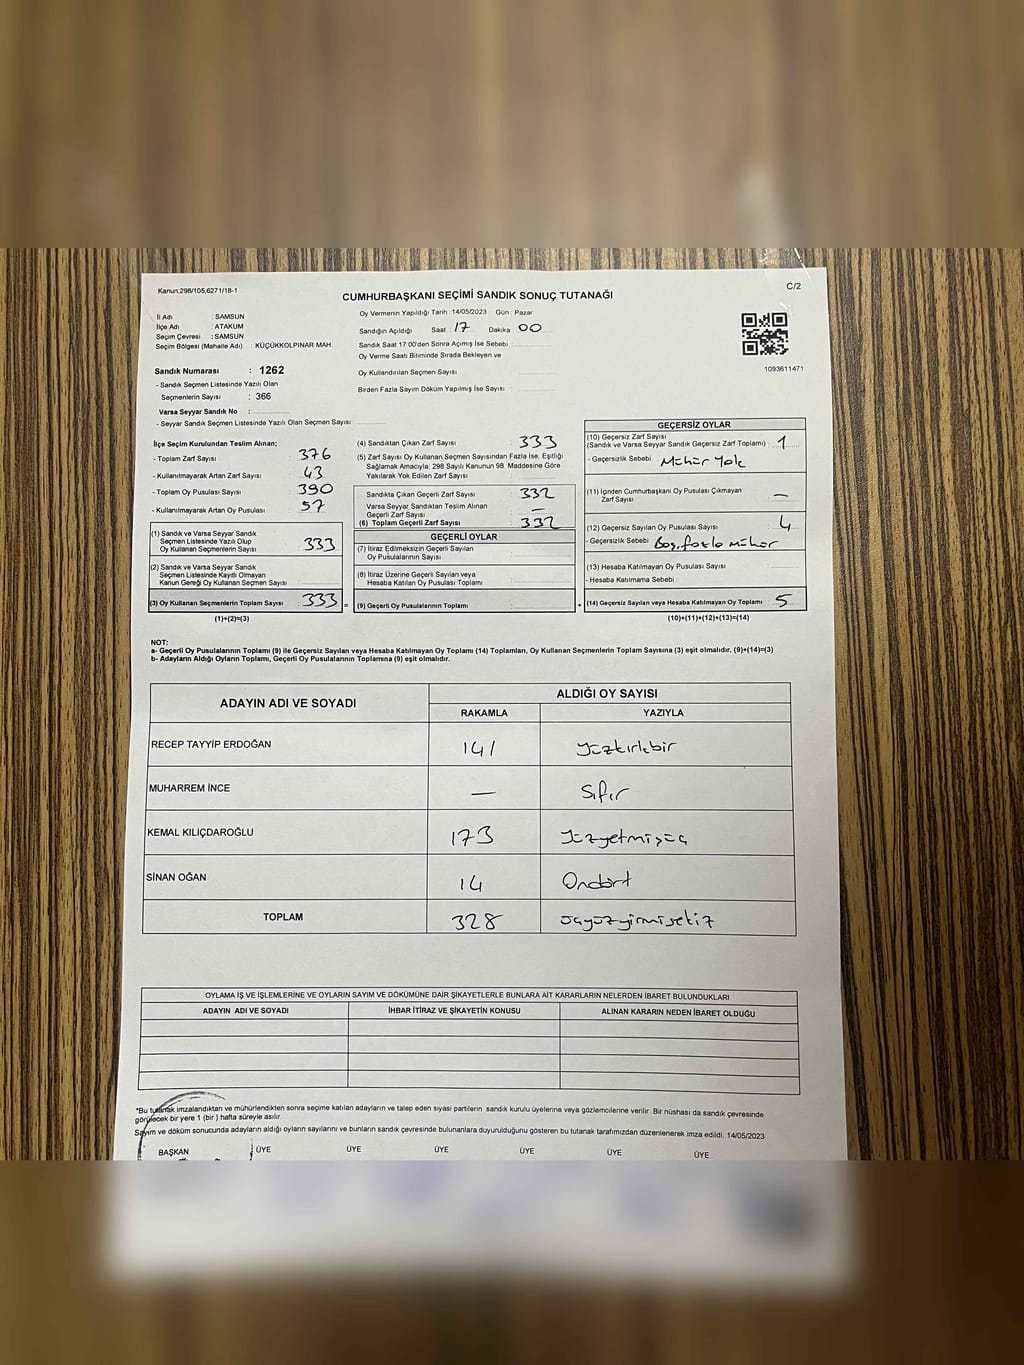 Kanun:298/105,6271/18-1
C/2
CUMHURBAŞKANI SEÇİMİ SANDIK SONUÇ TUTANAĞI
İl Adı : SAMSUN
İlçe Adı : ATAKUM
Seçim Çevresi : SAMSUN
Seçim Bölgesi (Mahalle Adı) : KÜÇÜKKOLPINAR MAH
Sandık Numarası : 1262
- Sandık Seçmen Listesinde Yazılı Olan
Seçmenlerin Sayısı : 366
Varsa Seyyar Sandık No :
- Seyyar Sandık Seçmen Listesinde Yazılı Olan Seçmen Sayısı:
Oy Vermenin Yapıldığı Tarih :14/05/2023 Gün : Pazar
Sandığın Açıldığı Saat : 17 Dakika : 00
Sandık Saat 17.00'den Sonra Açımış İse Sebebi :
Oy Verme Saati Bitiminde Sırada Bekleyen ve
Oy Kullandırılan Seçmen Sayısı :
Birden Fazla Sayım Döküm Yapılmış İse Sayısı :
1093611471
İlçe Seçim Kurulundan Teslim Alınan;
- Toplam Zarf Sayısı : 376
- Kullanılmayarak Artan Zarf Sayısı : 43
- Toplam Oy Pusulası Sayısı : 390
- Kullanılmayarak Artan Oy Pusulası : 57
(1) Sandık ve Varsa Seyyar Sandık
Seçmen Listesinde Yazılı Olup
Oy Kullanan Seçmenlerin Sayısı : 333
(2) Sandık ve Varsa Seyyar Sandık
Seçmen Listesinde Kayıtlı Olmayan
Kanun Gereği Oy Kullanan Seçmen Sayısı :
(3) Oy Kullanan Seçmenlerin Toplam Sayısı : 333 =
(1)+(2)=(3)
(4) Sandıktan Çıkan Zarf Sayısı : 333
(5) Zarf Sayısı Oy Kullanan Seçmen Sayısından Fazla İse, Eşitliği
Sağlamak Amacıyla, 298 Sayılı Kanunun 98. Maddesine Göre
Yakılarak Yok Edilen Zarf Sayısı :
Sandıkta Çıkan Geçerli Zarf Sayısı : 332
Varsa Seyyar Sandıktan Teslim Alınan
Geçerli Zarf Sayısı : —
(6) Toplam Geçerli Zarf Sayısı : 332
GEÇERLİ OYLAR
(7) İtiraz Edilmeksizin Geçerli Sayılan
Oy Pusulalarının Sayısı :
(8) İtiraz Üzerine Geçerli Sayılan veya
Hesaba Katılan Oy Pusulası Toplamı :
(9) Geçerli Oy Pusulalarının Toplamı : +
GEÇERSİZ OYLAR
(10) Geçersiz Zarf Sayısı
(Sandık ve Varsa Seyyar Sandık Geçersiz Zarf Toplamı) : 1
- Geçersizlik Sebebi : Mühür Yok
(11) İçinden Cumhurbaşkanı Oy Pusulası Çıkmayan
Zarf Sayısı : —
(12) Geçersiz Sayılan Oy Pusulası Sayısı : 4
- Geçersizlik Sebebi : Boş, fazla mühür
(13) Hesaba Katılmayan Oy Pusulası Sayısı :
- Hesaba Katılmama Sebebi :
(14) Geçersiz Sayılan veya Hesaba Katılmayan Oy Toplamı : 5
(10)+(11)+(12)+(13)=(14)
NOT:
a- Geçerli Oy Pusulalarının Toplamı (9) ile Geçersiz Sayılan veya Hesaba Katılmayan Oy Toplamı (14) Toplamları, Oy Kullanan Seçmenlerin Toplam Sayısına (3) eşit olmalıdır. (9)+(14)=(3)
b- Adayların Aldığı Oyların Toplamı, Geçerli Oy Pusulalarının Toplamına (9) eşit olmalıdır.
ADAYIN ADI VE SOYADI
ALDIĞI OY SAYISI
RAKAMLA YAZIYLA
RECEP TAYYİP ERDOĞAN 141 Yüzkırkbir
MUHARREM İNCE — Sıfır
KEMAL KILIÇDAROĞLU 173 Yüzyetmişüç
SİNAN OĞAN 14 Ondört
TOPLAM 328 üçyüzyirmisekiz
OYLAMA İŞ VE İŞLEMLERİNE VE OYLARIN SAYIM VE DÖKÜMÜNE DAİR ŞİKAYETLERLE BUNLARA AİT KARARLARIN NELERDEN İBARET BULUNDUKLARI
ADAYIN ADI VE SOYADI İHBAR İTİRAZ VE ŞİKAYETİN KONUSU ALINAN KARARIN NEDEN İBARET OLDUĞU
*Bu tutanak imzalandıktan ve mühürlendikten sonra seçime katılan adayların ve talep eden siyasi partilerin sandık kurulu üyelerine veya gözlemcilerine verilir. Bir nüshası da sandık çevresinde
görülecek bir yere 1 (bir) hafta süreyle asılır.
Sayım ve döküm sonucunda adayların aldığı oyların sayılarını ve bunların sandık çevresinde bulunanlara duyurulduğunu gösteren bu tutanak tarafımızdan düzenlenerek imza edildi. 14/05/2023
BAŞKAN ÜYE ÜYE ÜYE ÜYE ÜYE ÜYE